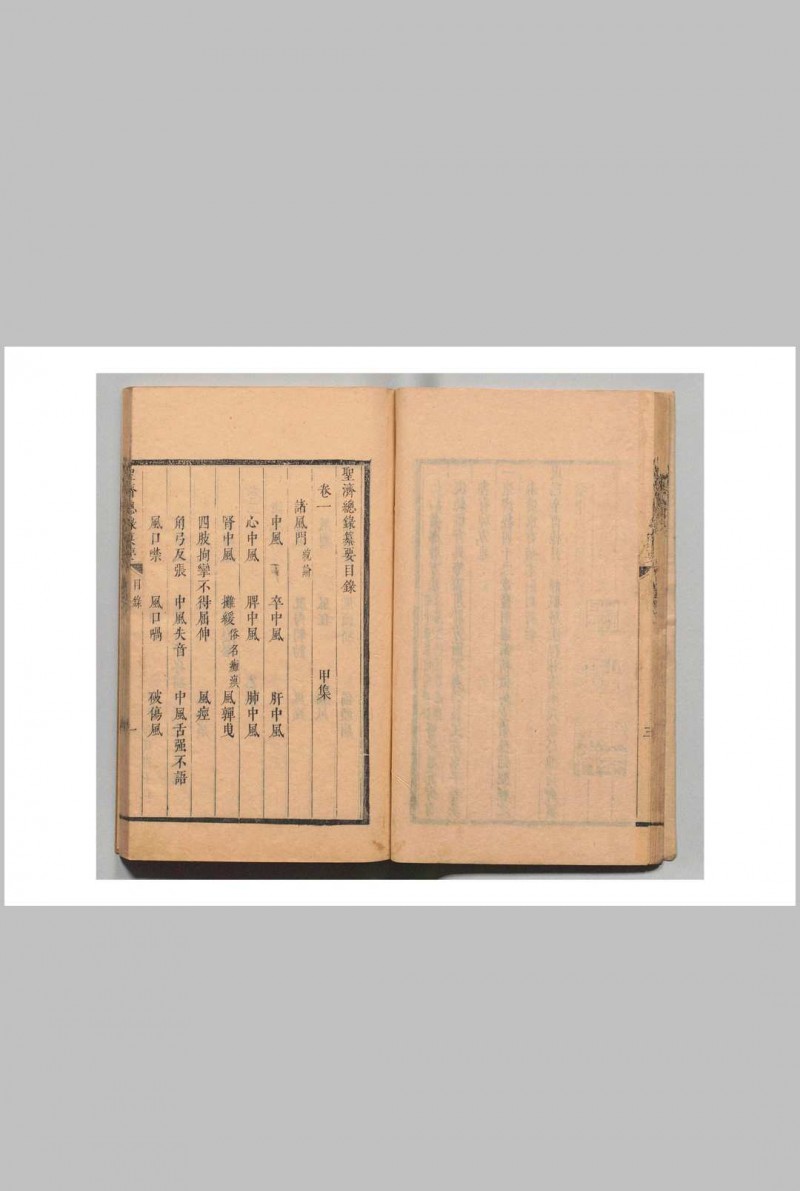 聖濟總錄纂要目錄
卷一 甲集
諸風門 說論
中風 卒中風 肝中風
心中風 脾中風 肺中風
腎中風 攤緩 俗名癱瘓 風嚲曳
四肢拘攣不得屈伸 風痙
角弓反張 中風失音 中風舌强不語
風口噤 風口喎 破傷風
聖濟總錄纂要 目錄 一
三